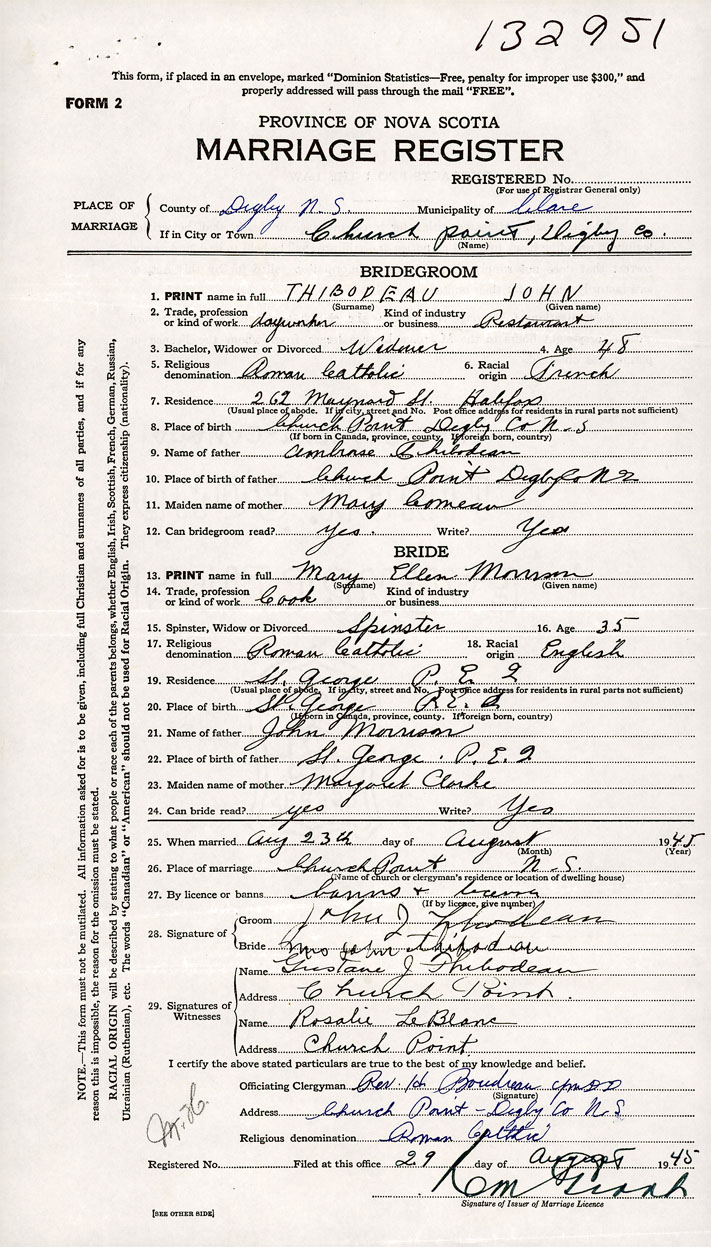 132951
This form, if placed in an envelope, marked "Dominion Statistics—Free, penalty for improper use $300," and
properly addressed will pass through the mail "FREE".
FORM 2
PROVINCE OF NOVA SCOTIA
MARRIAGE REGISTER
REGISTERED No.
(For use of Registrar General only)
PLACE OF MARRIAGE
County of Digby N.S. Municipality of Clare
If in City or Town Church point, Digby Co.
(Name)
BRIDEGROOM
1. PRINT name in full THIBODEAU JOHN
(Surname) (Given name)
2. Trade, profession or kind of work dayworker Kind of industry or business Restaurant
3. Bachelor, Widower or Divorced Widower 4. Age 48
5. Religious denomination Roman Catholic 6. Racial origin French
7. Residence 262 Maynard St. Halifax
(Usual place of abode. If in city, street and No. Post office address for residents in rural parts not sufficient)
8. Place of birth Church Point Digby Co N.S
(If born in Canada, province, county. If foreign born, country)
9. Name of father Ambrose Thibodeau
10. Place of birth of father Church Point Digby Co N S
11. Maiden name of mother Mary Comeau
12. Can bridegroom read? Yes. Write? Yes
BRIDE
13. PRINT name in full Mary Ellen Morrison
(Surname) (Given name)
14. Trade, profession or kind of work Cook Kind of industry or business
15. Spinster, Widow or Divorced Spinster 16. Age 35
17. Religious denomination Roman Catholic 18. Racial origin English
19. Residence St. George P. E. I
(Usual place of abode. If in city, street and No. Post office address for residents in rural parts not sufficient)
20. Place of birth St. George P.E.I
(If born in Canada, province, county. If foreign born, country)
21. Name of father John Morrison
22. Place of birth of father St. George. P.E.I
23. Maiden name of mother Margaret Clarke
24. Can bride read? yes Write? Yes
25. When married Aug 23th day of August 1945
(Month) (Year)
26. Place of marriage Church Point N.S.
(Name of church or clergyman's residence or location of dwelling house)
27. By licence or banns banns +
(If by licence, give number)
28. Signature of
Groom John J Thibodeau
Bride Mrs John Thibodeau
29. Signatures of Witnesses
Name Gustave J Thibodeau
Address Church Point.
Name Rosalie LeBlanc
Address Church Point
I certify the above stated particulars are true to the best of my knowledge and belief.
Officiating Clergyman Rev. H Boudreau
(Signature)
Address Church Point - Digby Co N.S
Religious denomination Roman Catholic
Registered No. Filed at this office 29 day of August 1945
Signature of Issuer of Marriage Licence
[SEE OTHER SIDE]
NOTE.—This form must not be mutilated. All information asked for is to be given, including full Christian and surnames of all parties, and if for any
reason this is impossible, the reason for the omission must be stated.
RACIAL ORIGIN will be described by stating to what people or race each of the parents belongs, whether English, Irish, Scottish, French, German, Russian,
Ukrainian (Ruthenian), etc. The words "Canadian" or "American" should not be used for Racial Origin. They express citizenship (nationality).